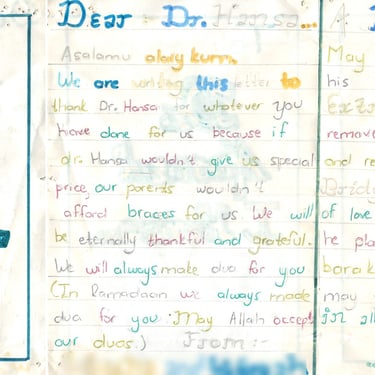 Dear Dr. Hansa...
Asalamu alaykum.
We are writing this letter to
thank Dr. Hansa for whatever you
have done for us because if
dr. Hansa wouldn't give us special
price, our parents wouldn't
afford braces for us. We will
be eternally thankful and grateful.
We will always make dua for you
(In Ramadaan we always made
dua for you. May Allah accept
our duas.) From:-
A
May
his
Extr
remove
and re
Bridg
of love
he pla
barak
may
in all